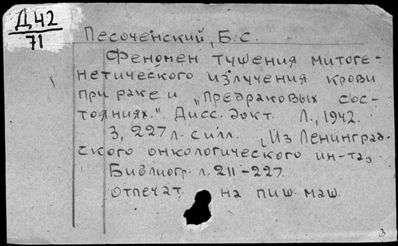 Д42
71
Песоченский, Б.С.
Феномен тушения митоге-
нетического излучения крови
при раке и „Предраковых сос-
тояниях.“ Дисс. докт. Л., 1942.
3, 227 л. с илл. (Из Ленинград-
ского онкологического ин-та)
Библиогр. л. 211-227
Отпечат. на пиш. маш.
3